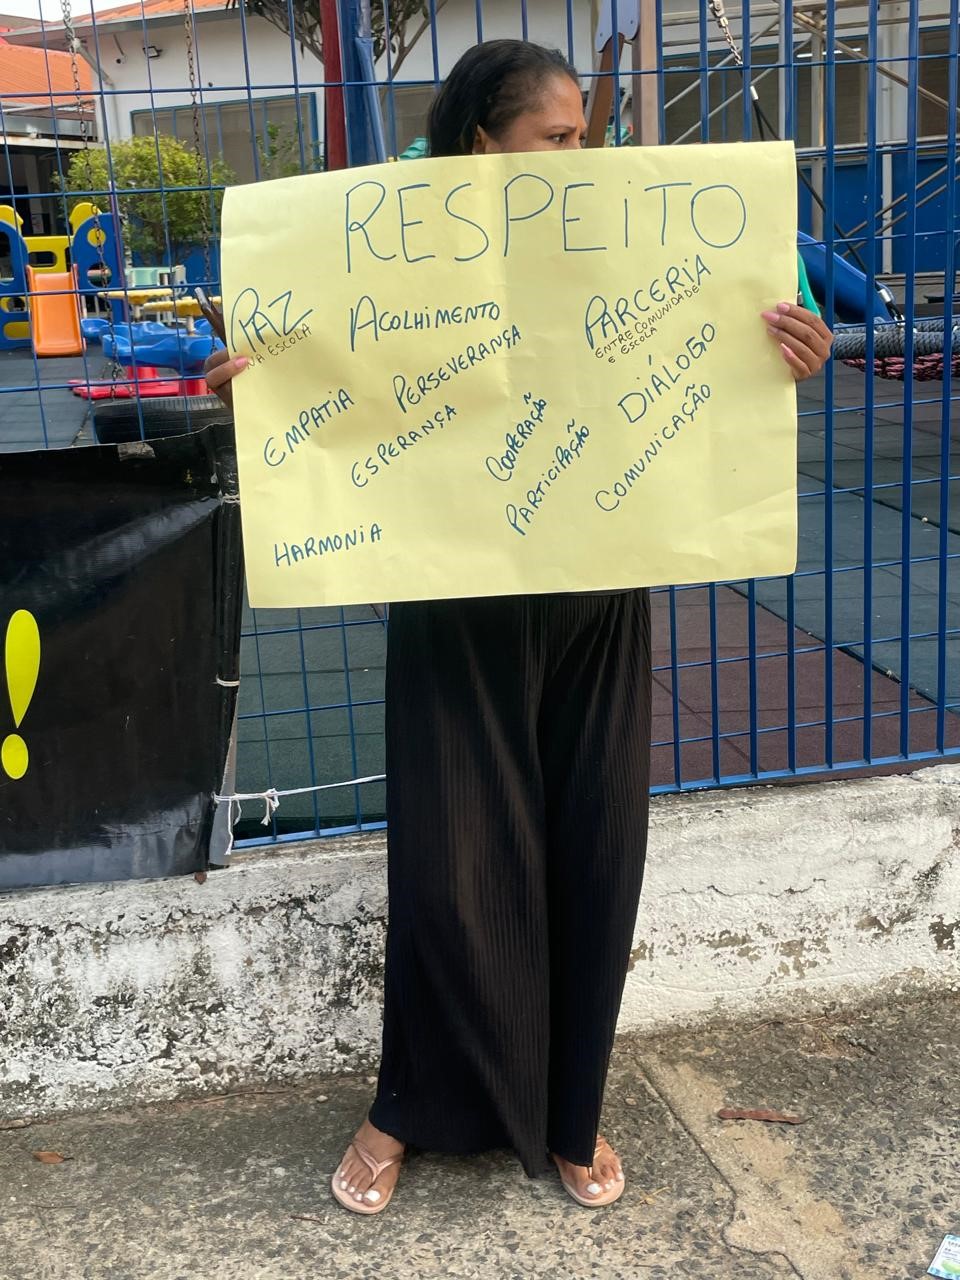 RESPEITO
PAZ
NA ESCOLA
ACOLHIMENTO
PARCERIA
ENTRE COMUNIDADE
E ESCOLA
EMPATIA
PERSEVERANÇA
DIÁLOGO
ESPERANÇA
COOPERAÇÃO
PARTICIPAÇÃO
COMUNICAÇÃO
HARMONIA
!